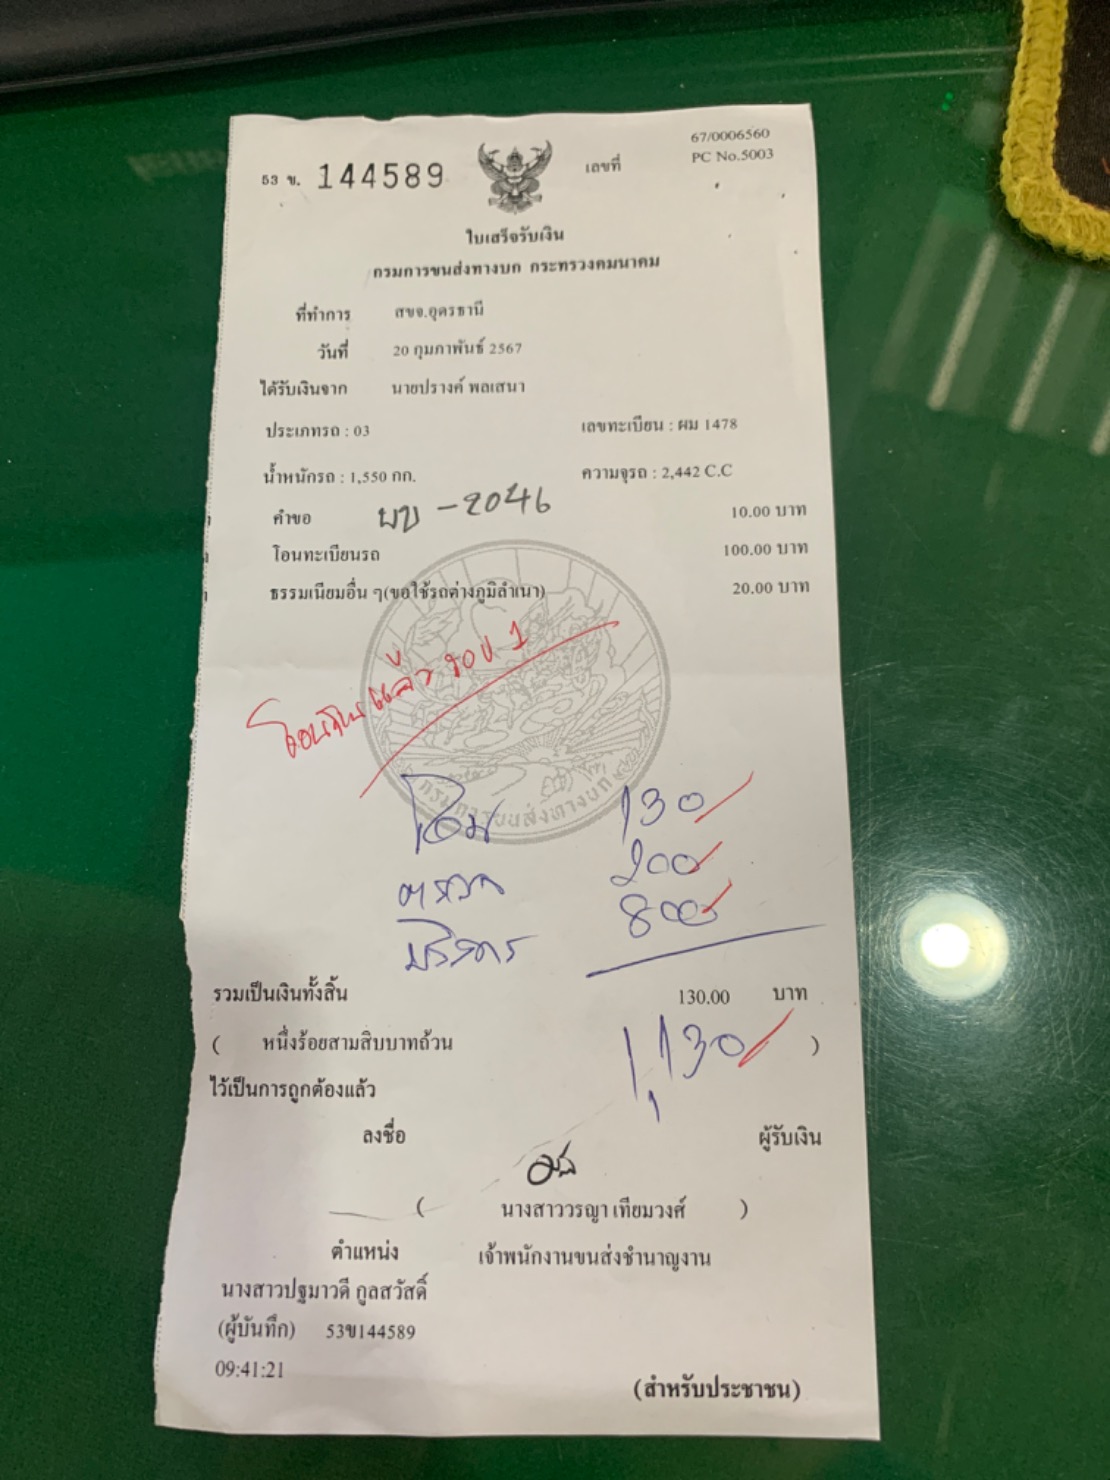 53 ข. 144589
เลขที่
67/0006560
PC No.5003
ใบเสร็จรับเงิน
กรมการขนส่งทางบก กระทรวงคมนาคม
ที่ทำการ สขจ.อุดรธานี
วันที่ 20 กุมภาพันธ์ 2567
ได้รับเงินจาก นายปรางค์ พลเสนา
ประเภทรถ : 03 เลขทะเบียน : ผม 1478
น้ำหนักรถ : 1,550 กก. ความจุรถ : 2,442 C.C
คำขอ ขข -2046 10.00 บาท
โอนทะเบียนรถ 100.00 บาท
ธรรมเนียมอื่น ๆ(ขอใช้รถต่างภูมิลำเนา) 20.00 บาท
โอนเงินแล้ว รอบ 1
กรมการขนส่งทางบก
โอน 130
ตรวจ 200
บริการ 800
รวมเป็นเงินทั้งสิ้น 130.00 บาท
( หนึ่งร้อยสามสิบบาทถ้วน )
1,130
ไว้เป็นการถูกต้องแล้ว
ลงชื่อ ผู้รับเงิน
( นางสาววรญา เทียมวงศ์ )
ตำแหน่ง เจ้าพนักงานขนส่งชำนาญงาน
นางสาวปฐมาวดี กูลสวัสดิ์
(ผู้บันทึก) 53ข144589
09:41:21
(สำหรับประชาชน)